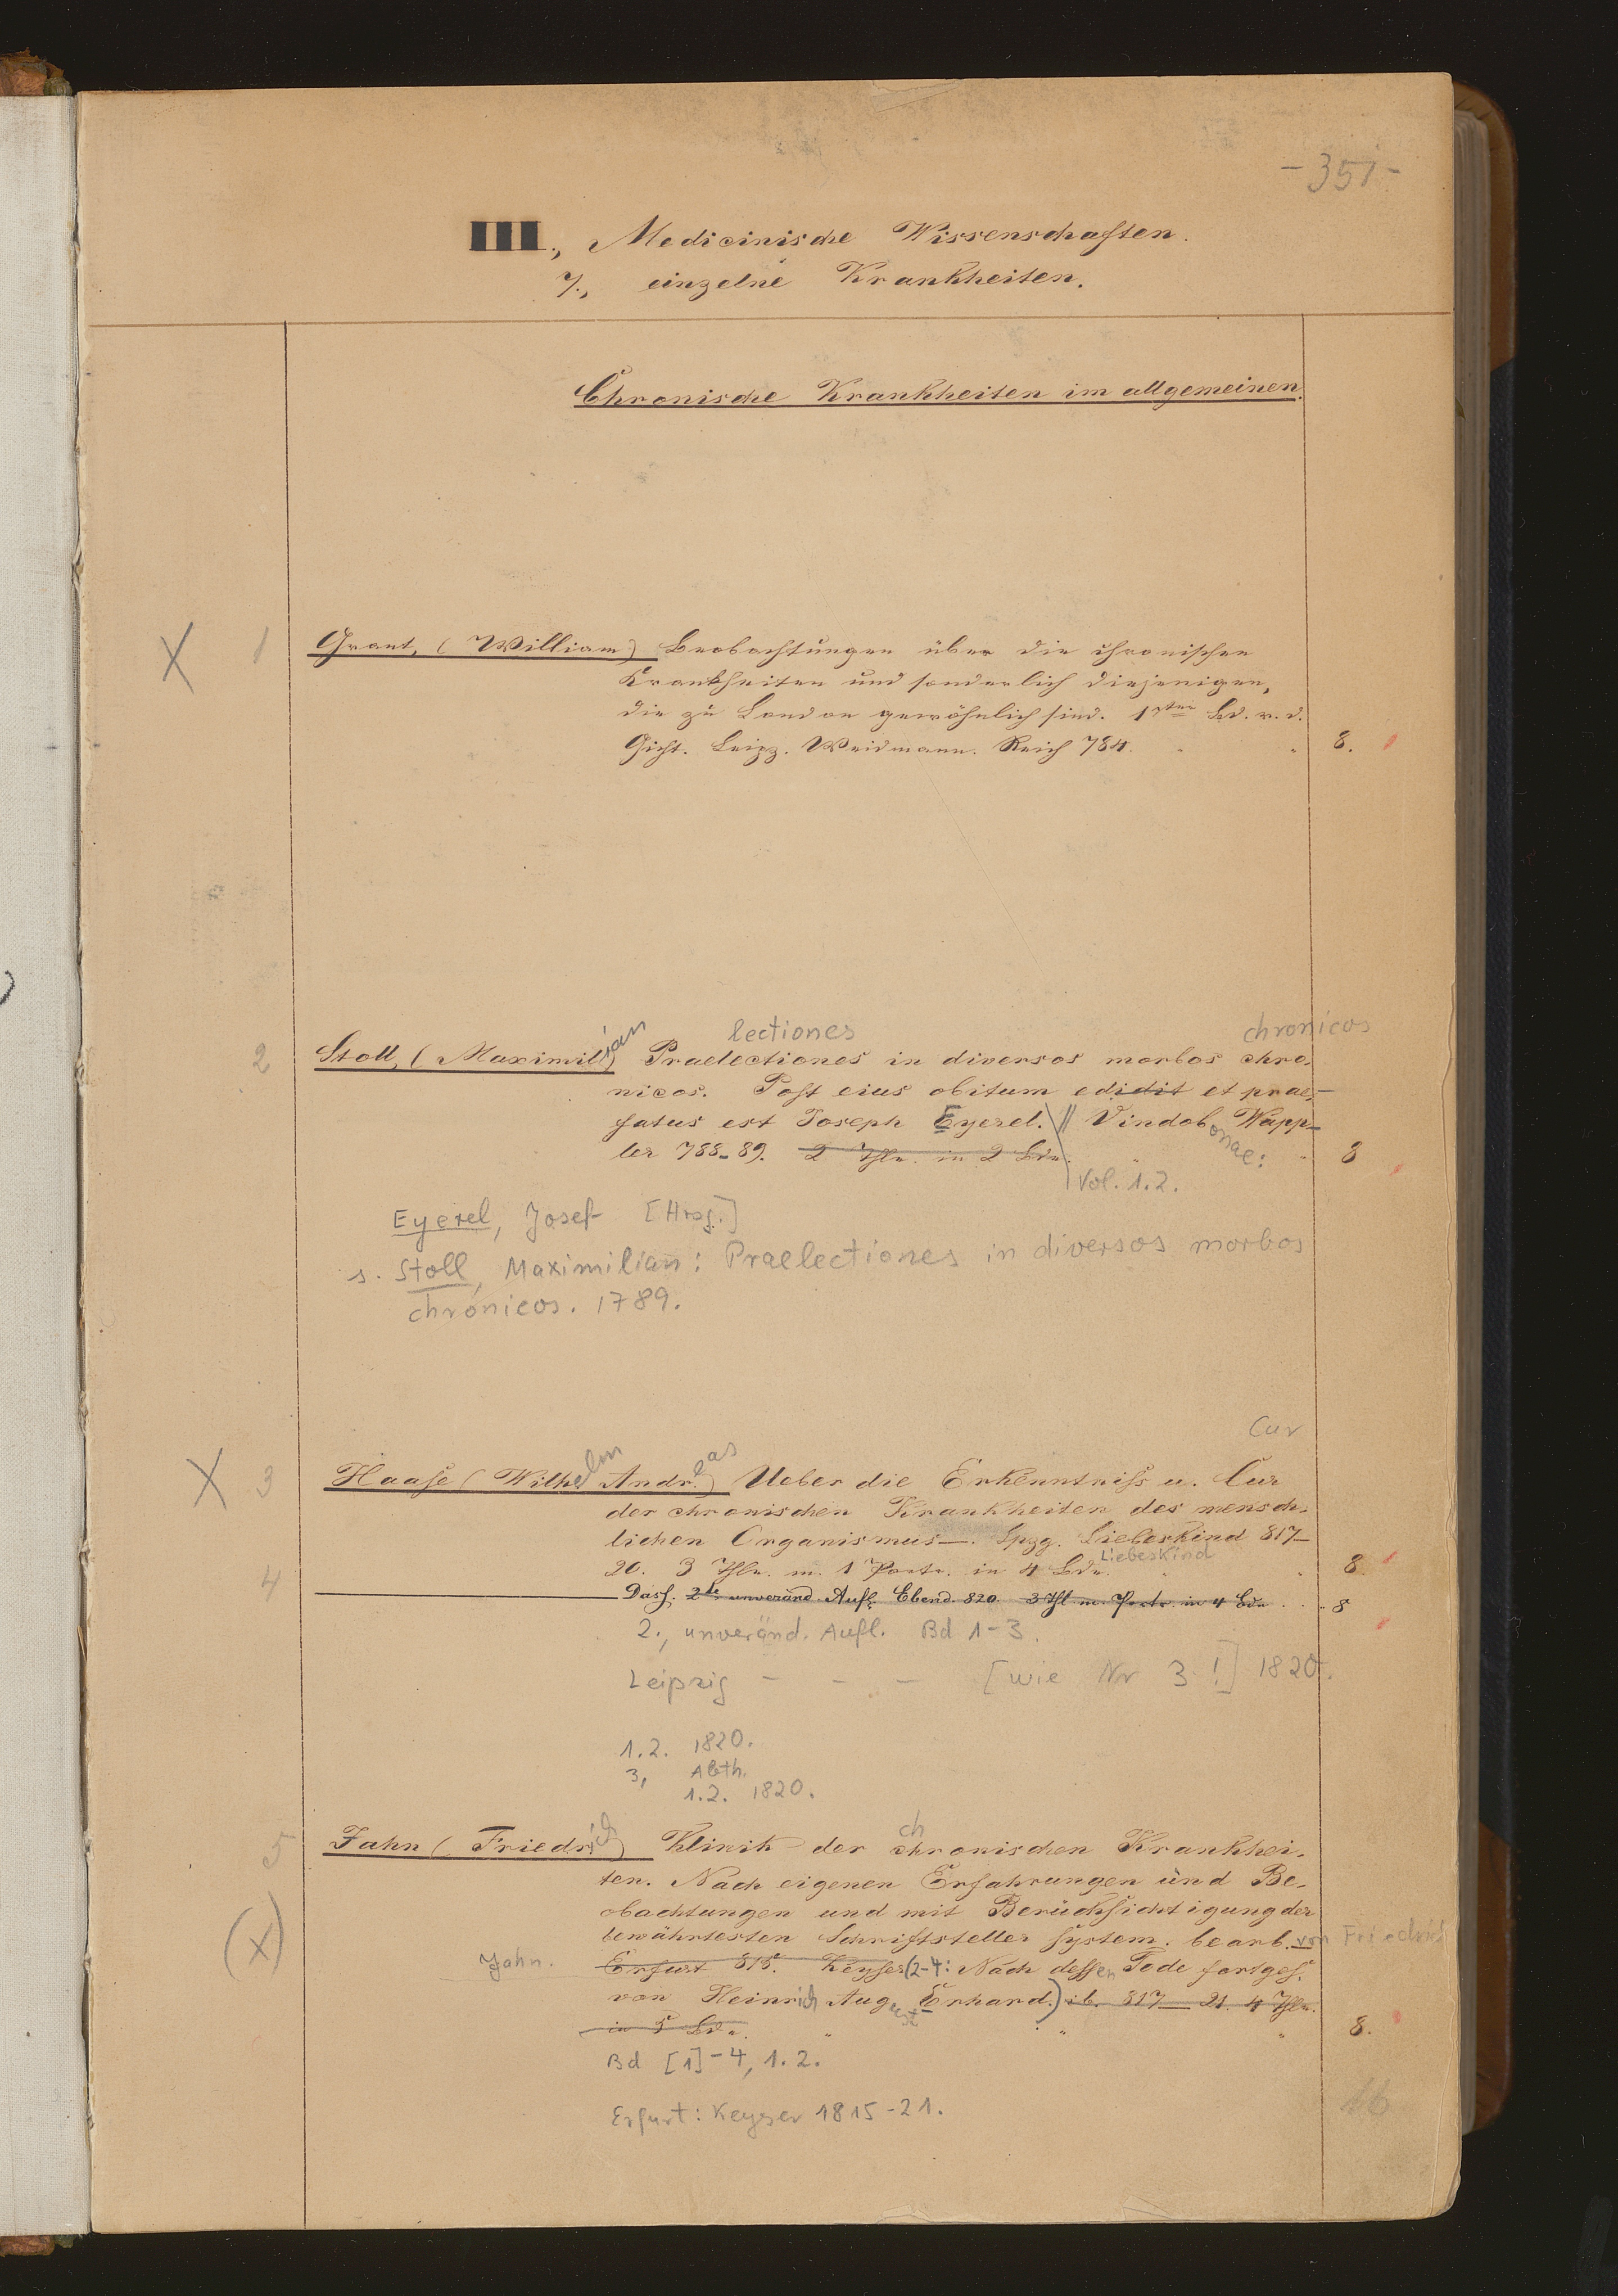 - 351 -
III., Medicinische Wissenschaften.
7., einzelne Krankheiten.
Chronische Krankheiten im allgemeinen.
X 1 Grant, (William) Beobachtungen über die chronischen
Krankheiten und sonderlich diejenigen,
die zu London gewöhnlich sind. 1ster Bd. v. d.
Gicht. Leipz. Weidmann. Reich 784. " 8.
lectiones chronicos
2 Stoll, (Maximilian) Praelectiones in diversos morbos chro-
nicos. Post eius obitum edidit et prae-
fatus est Joseph Eyerel. || Vindobonae: Wapp-
ler 788-89. 2 Thle. in 2 Bdn. " 8
Vol. 1.2.
Eyerel, Josef [Hrsg.]
s. Stoll, Maximilian: Praelectiones in diversos morbos
chronicos. 1789.
Cur
X 3 Haase (Wilhelm Andreas) Ueber die Erkenntniss u. Cur
der chronischen Krankheiten des mensch-
lichen Organismus—. Lpzg. Liebeskind 817-
20. 3 Thle. m. 1 Portr. in 4 Bdn. Liebeskind " 8.
4 Dass. 2te unveränd. Aufl. Ebend. 820. 3 Thl. m. Portr. in 4 Bdn . . . 8
2., unveränd. Aufl. Bd 1-3.
Leipzig - - - [wie Nr 3!] 1820.
1.2. 1820.
3, Abth.
1.2. 1820.
ch
5 Jahn (Friedrich) Klinik der chronischen Krankhei-
ten. Nach eigenen Erfahrungen und Be-
obachtungen und mit Berücksichtigung der
bewährtesten Schriftsteller system. bearb. von Friedrich
(x) Jahn. Erfurt 815. Keyser (2-4: Nach dessen Tode fortges.
von Heinrich August Erhard.) ib. 817-21. 4 Thle.
in 5 Bdn. " " " 8.
Bd [1]-4, 1.2.
Erfurt: Keyser 1815-21.
16